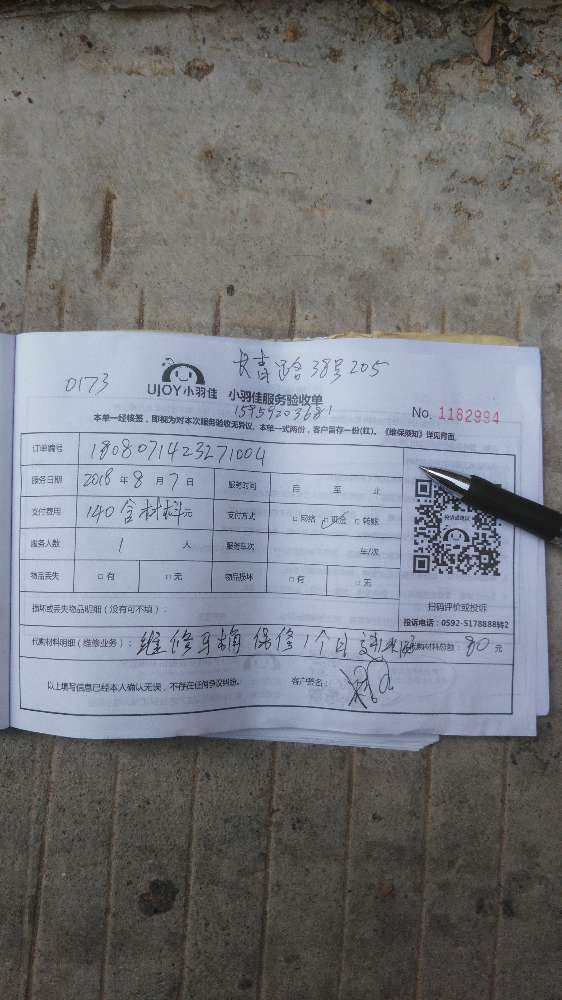 长青路38号205
0173
UJOY小羽佳 小羽佳服务验收单
15959203681
No. 1162994
本单一经核签，即视为对本次服务验收无异议。本单一式两份，客户留存一份(红)。《维保须知》详见背面
订单编号 1808071423271004
服务日期 2018 年 8 月 7 日 服务时间 自 至 止
支付费用 140含材料元 支付方式 □网络 □现金 □转账
服务人数 1 人 服务车次 车/次
物品丢失 □有 □无 物品损坏 □有 □无
扫码评价或投诉
损坏或丢失物品明细（没有可不填）：
投诉电话：0592-5178888转2
代购材料明细（维修业务）： 维修马桶 保修1个月 代购材料总数： 80 元
以上填写信息已经本人确认无误，不存在任何争议纠纷。 客户签名：